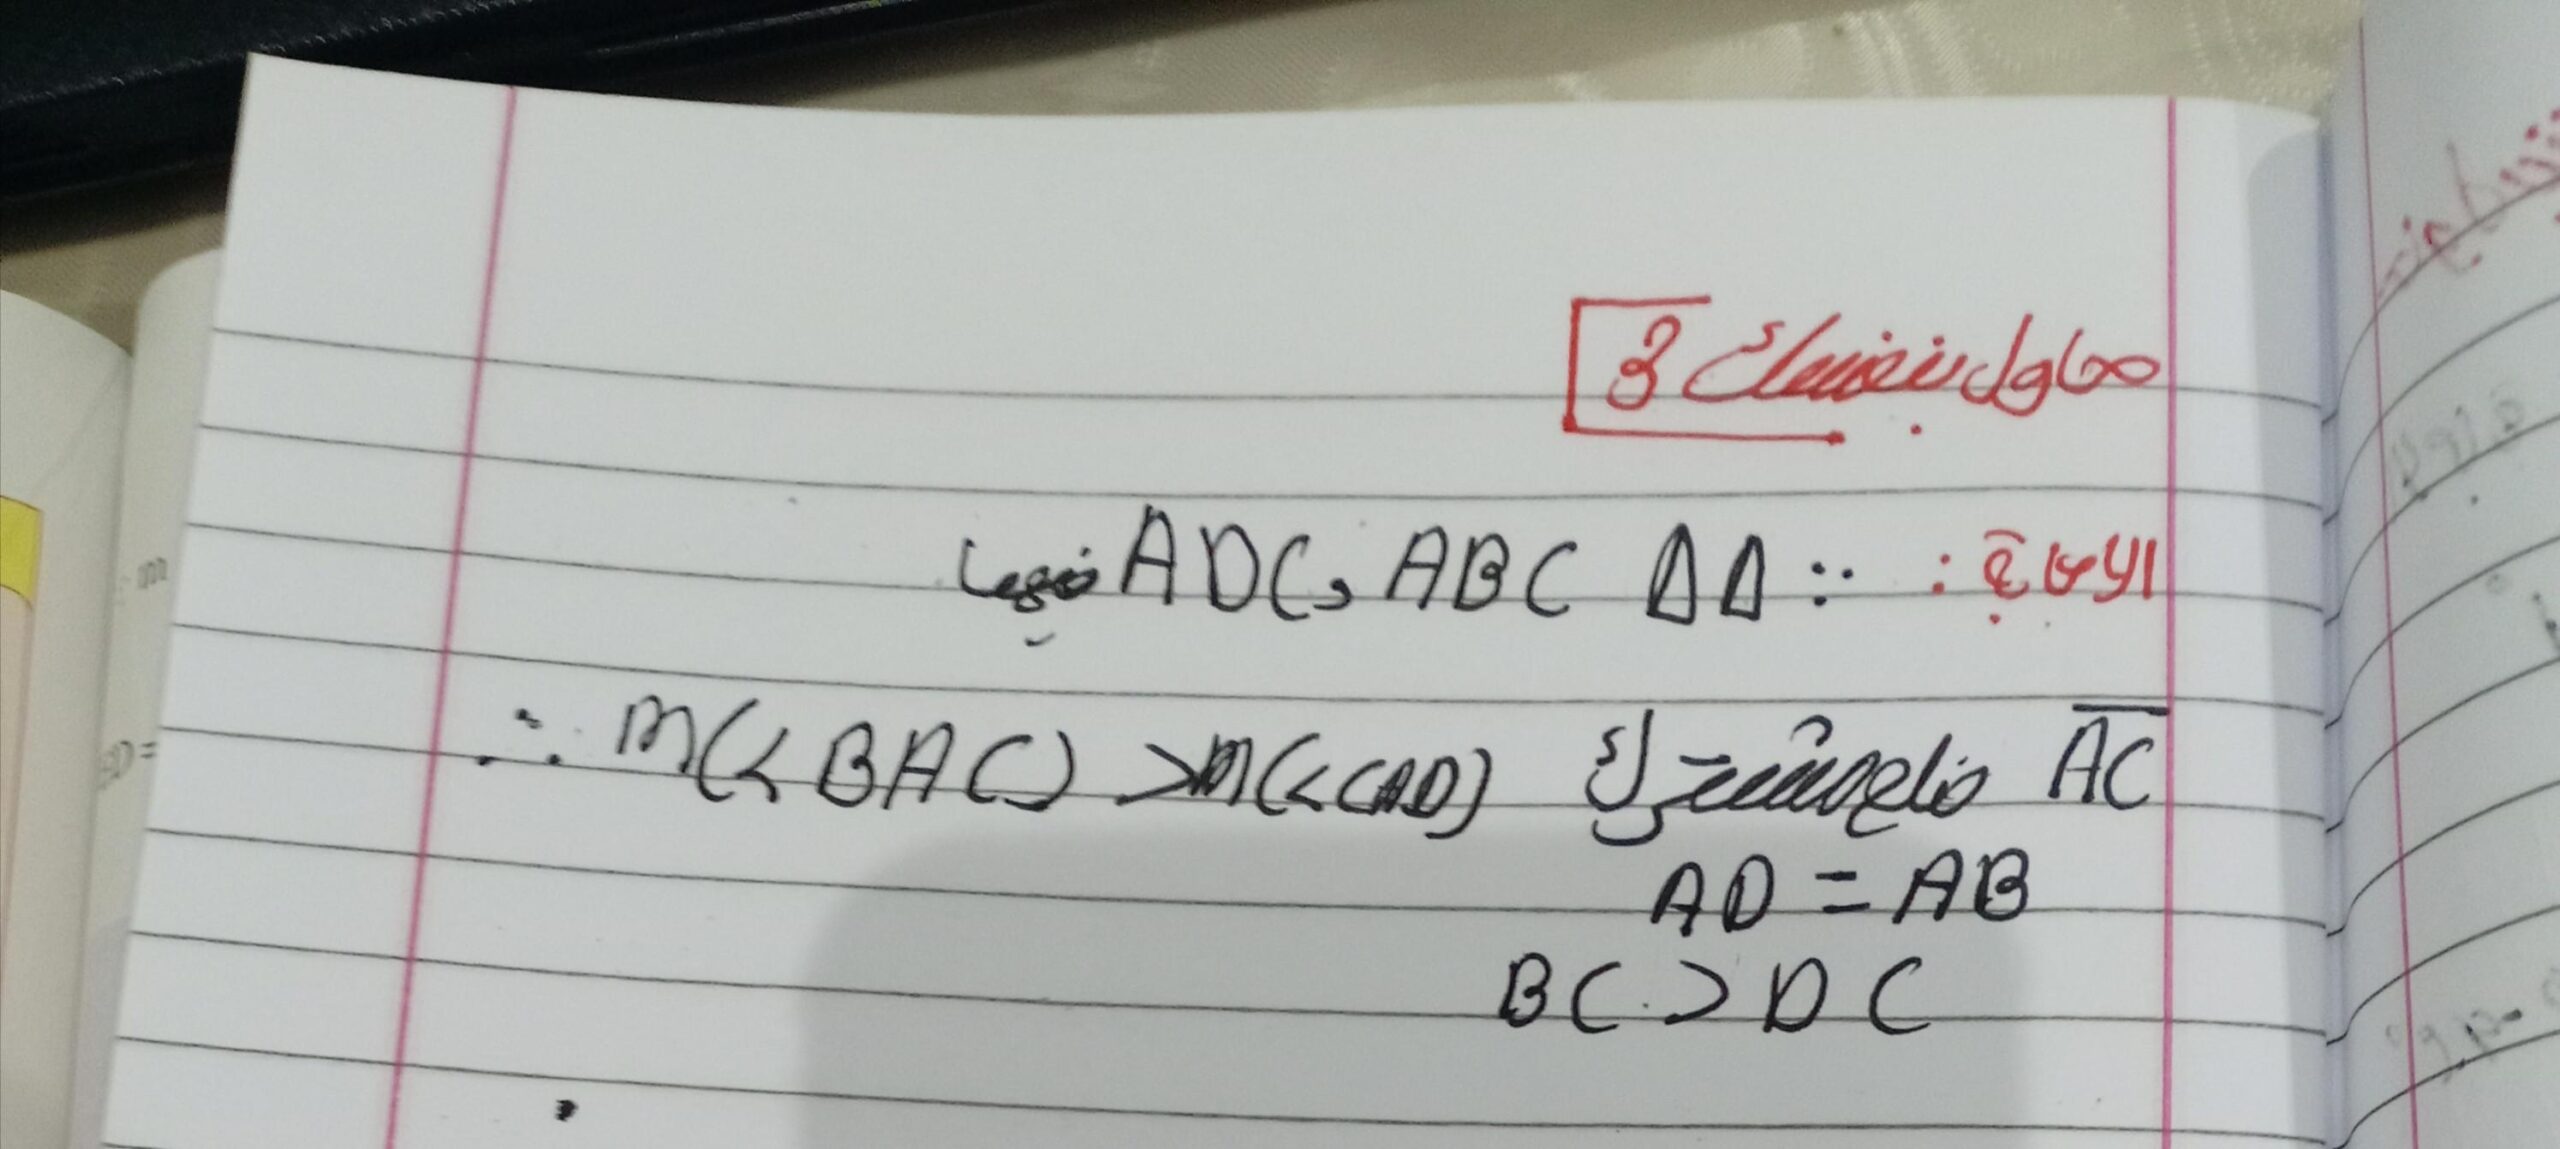 حاول بنفسك 3
الإجابة : ∵ ΔΔ ABC و ADC فيهما
AC ضلع مشترك
∴ m(<BAC) > m(<CAD)
AD = AB
BC > DC